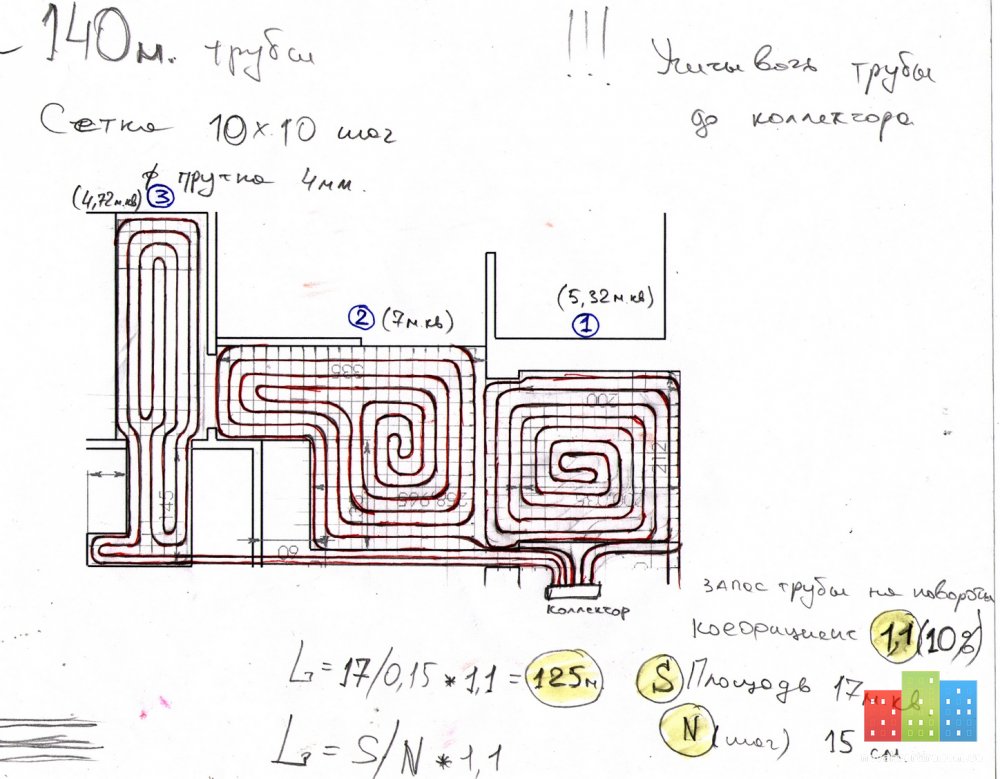 140м. трубы
!!!
Учитывать трубы
до коллектора
Сетка 10×10 шаг
ф прутка 4мм.
(4,72м.кв) 3
2 (7м.кв)
(5,32м.кв)
1
335
200
212
145
60
коллектор
запас трубы на повороты
коефициент 1,1 (10%)
L = 17/0,15 * 1,1 = 125м
S Площадь 17м.кв
N (шаг) 15 см
L = S/N * 1,1